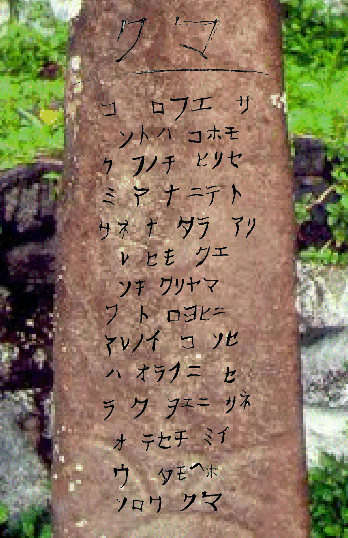 クマ
コ ロフエ サ
ソトハ コホモ
ケ フノチ ヒリセ
ミ ア ナ ニテト
サネ ナ タラ アリ
レ ヒモ クエ
ソキ クリヤマ
フ ト ロヨヒニ
マレノイ コ ソセ
ハ オラクニ セ
ラ ク ヲエニ サネ
オ テセチ ミイ
ウ タモヘホ
ソロワ クマ